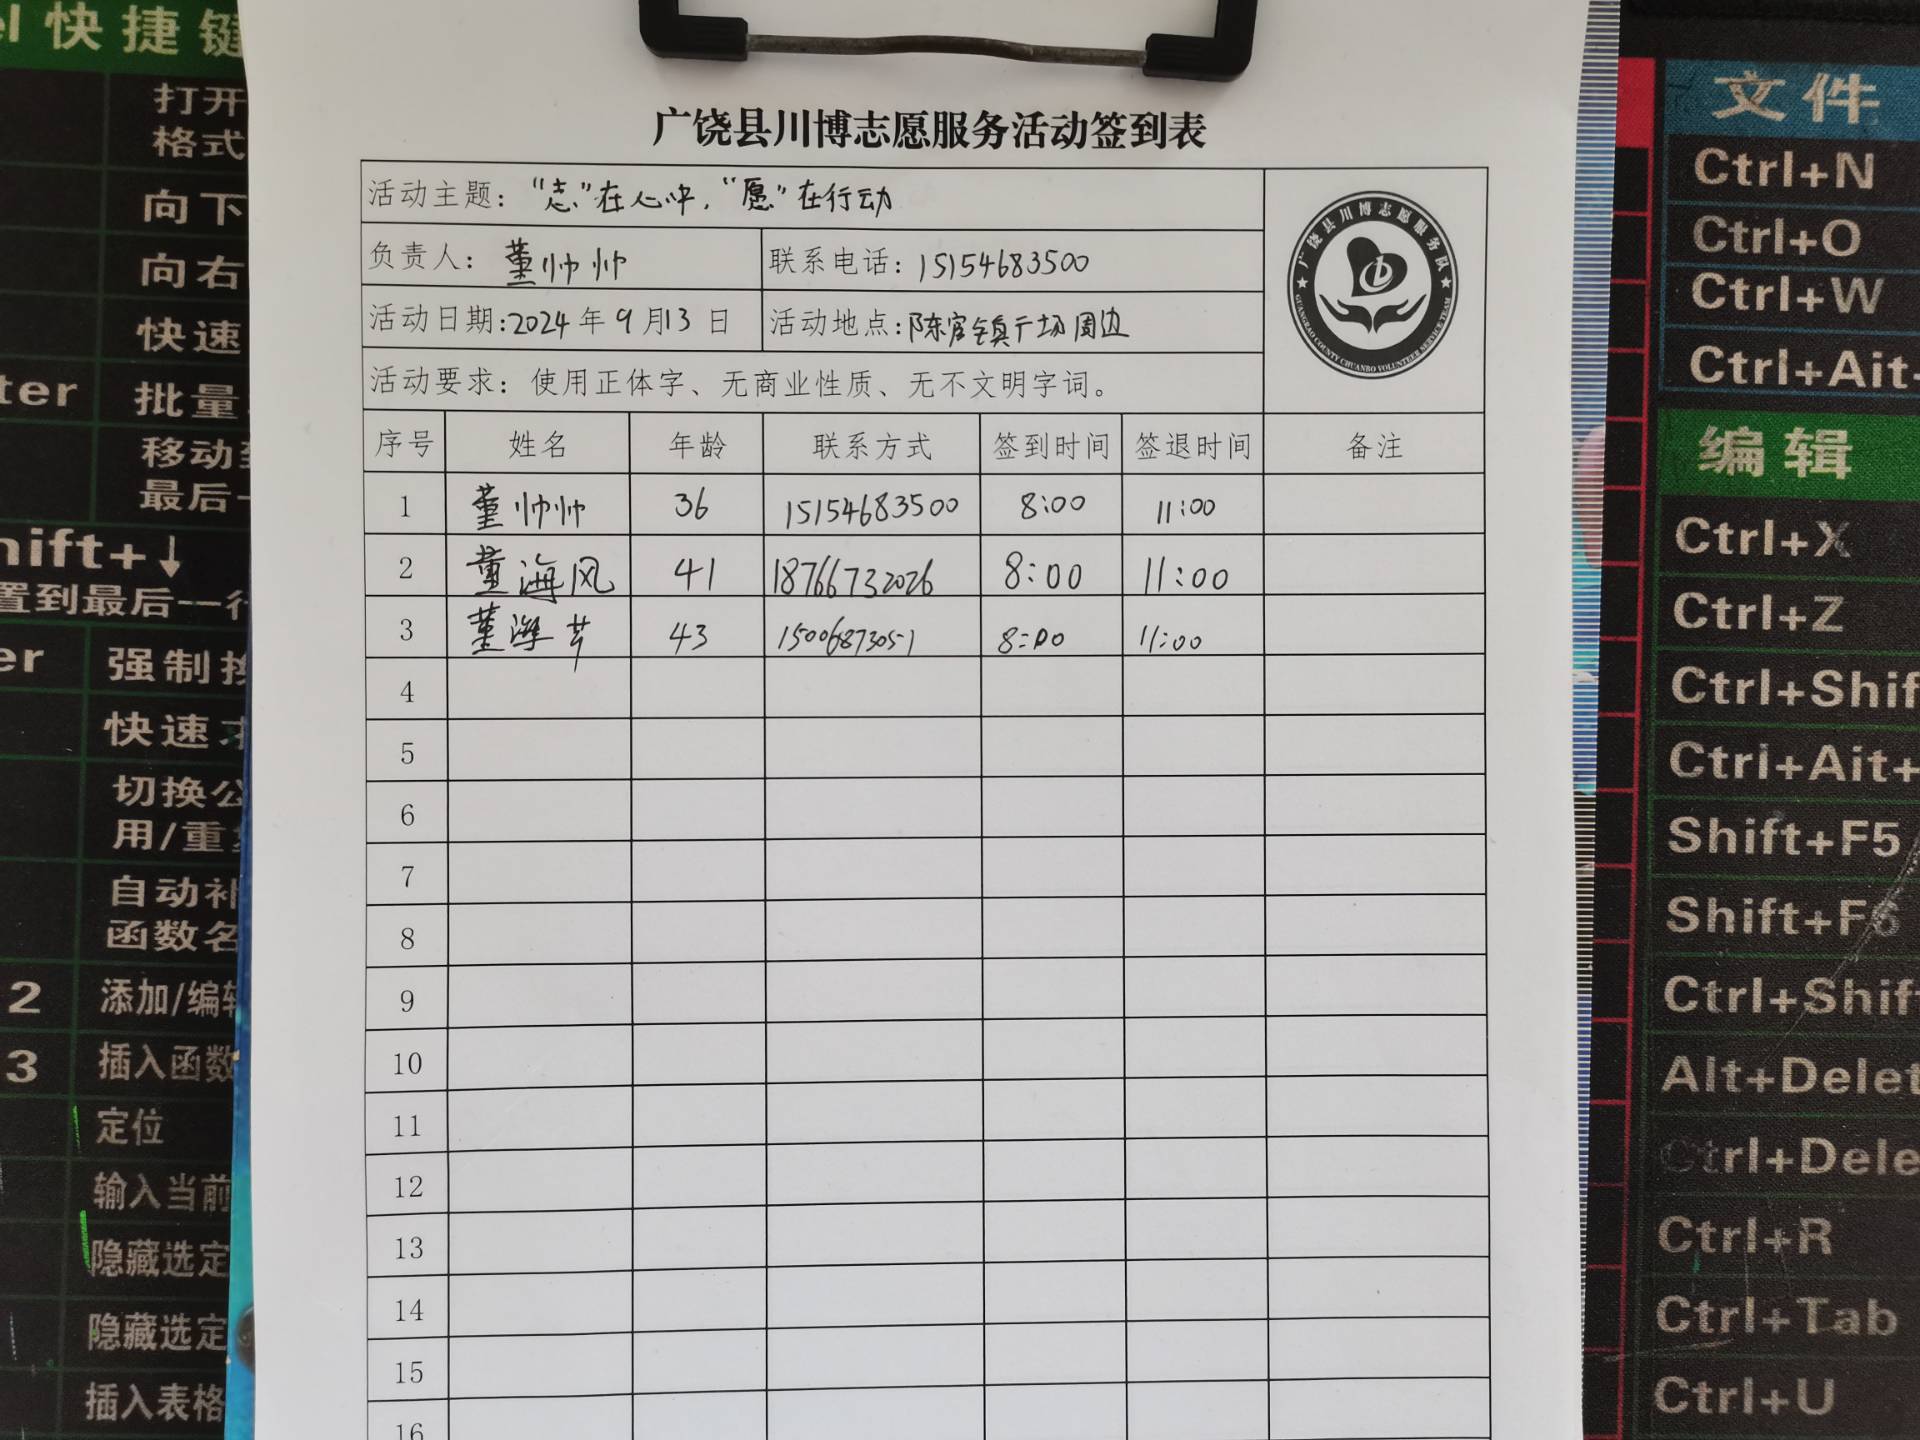 el 快捷键
打开
格式
向下
向右
快速
ter 批量
移动到
最后一
hift+↓
置到最后一行
er 强制换
快速求
切换公
用/重复
自动补
函数名
2 添加/编辑
3 插入函数
定位
输入当前
隐藏选定
隐藏选定
插入表格
广饶县川博志愿服务活动签到表
活动主题：“志”在心中，“愿”在行动
负责人：董帅帅 联系电话：15154683500
活动日期：2024年9月13日 活动地点：陈官镇广场周边
活动要求：使用正体字、无商业性质、无不文明字词。
广饶县川博志愿服务队
GUANGRAO COUNTY CHUANBO VOLUNTEER SERVICE TEAM
序号 姓名 年龄 联系方式 签到时间 签退时间 备注
1 董帅帅 36 15154683500 8:00 11:00
2 董海风 41 18766732026 8:00 11:00
3 董海芹 43 15006873051 8:00 11:00
4
5
6
7
8
9
10
11
12
13
14
15
16
文件
Ctrl+N
Ctrl+O
Ctrl+W
Ctrl+Ait+
编辑
Ctrl+X
Ctrl+Z
Ctrl+Shif
Ctri+Ait+
Shift+F5
Shift+F6
Ctrl+Shift
Alt+Delet
Ctrl+Dele
Ctrl+R
Ctrl+Tab
Ctrl+U